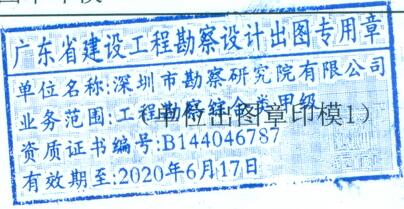 广东省建设工程勘察设计出图专用章
单位名称:深圳市勘察研究院有限公司
业务范围:工程勘察综合类甲级
单位出图章印模1)
资质证书编号:B144046787
有效期至:2020年6月17日